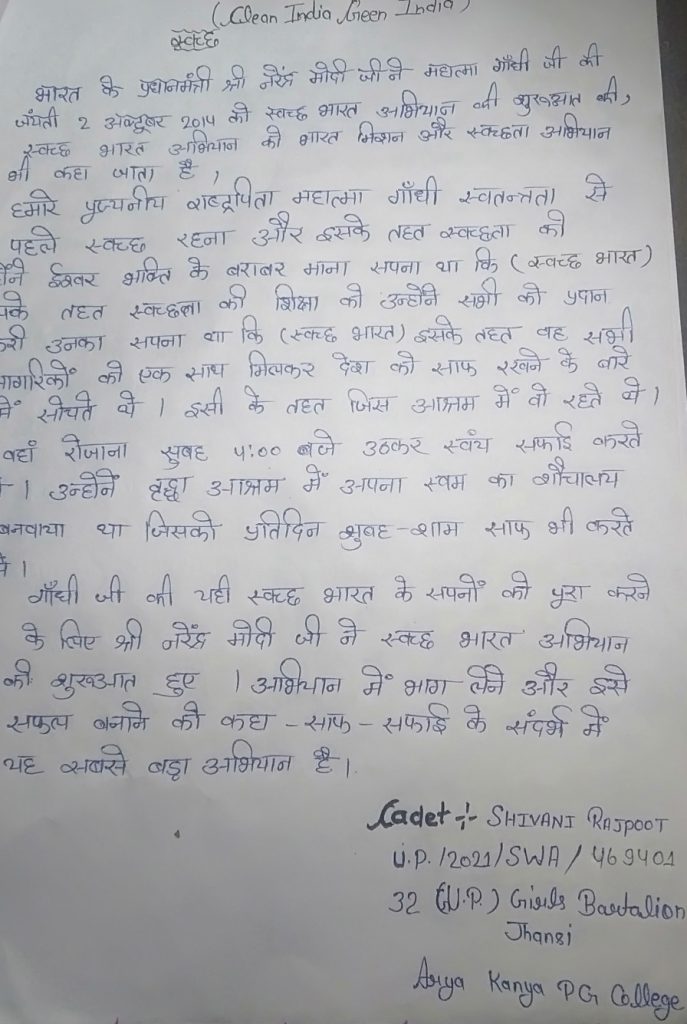 (Clean India Geen India)
स्वच्छ
भारत के प्रधानमंत्री श्री नरेंद्र मोदी जी ने महात्मा गाँधी जी की
जंयती 2 अक्टूबर 2014 को स्वच्छ भारत अभियान की शुरुआत की,
स्वच्छ भारत अभियान को भारत मिशन और स्वच्छता अभियान
भी कहा जाता है ,
हमारे पूज्यनीय राष्ट्रपिता महात्मा गाँधी स्वतन्त्रता से
पहले स्वच्छ रहना और इसके तहत स्वच्छता को
ईश्वर भक्ति के बराबर माना सपना था कि (स्वच्छ भारत)
तहत स्वच्छता की शिक्षा को उन्होंने सभी को प्रदान
करी उनका सपना था कि (स्वच्छ भारत) इसके तहत वह सभी
नागरिकों को एक साथ मिलकर देश को साफ रखने के बारे
में सोचते थे । इसी के तहत जिस आश्रम में वो रहते थे ।
वहां रोजाना सुबह 4:00 बजे उठकर स्वंय सफाई करते
। उन्होंने वृद्धा आश्रम में अपना स्वम का शौचालय
बनवाया था जिसको प्रतिदिन शुबह-शाम साफ भी करते
थे ।
गाँधी जी की यही स्वच्छ भारत के सपनों को पूरा करने
के लिए श्री नरेंद्र मोदी जी ने स्वच्छ भारत अभियान
की शुरुआत हुए । अभियान में भाग लेने और इसे
सफल बनाने को कहा - साफ - सफाई के संदर्भ में
यह सबसे बड़ा अभियान है ।
Cadet :- SHIVANI RAJPOOT
U.P./2021/SWA/469401
32 (U.P.) Girls Bartalion
Jhansi
Arya Kanya PG College